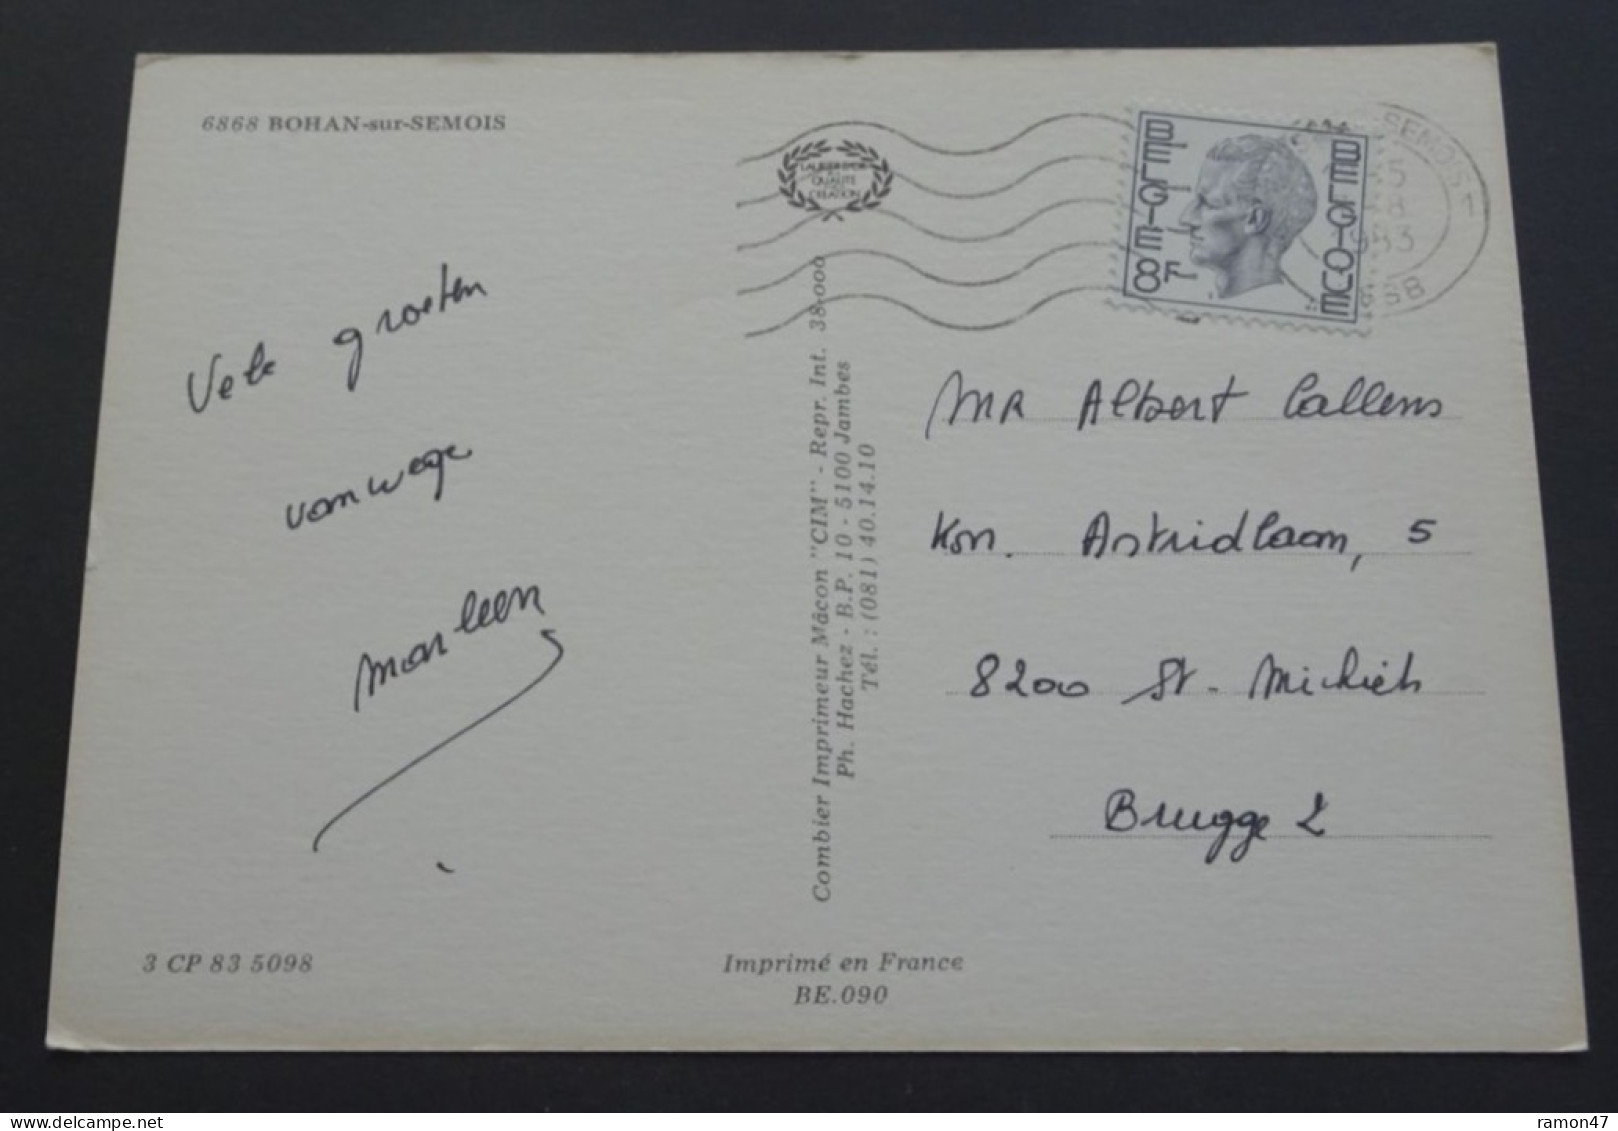 6868 BOHAN-sur-SEMOIS
Vele groeten
vanwege
Marleen
3 CP 83 5098
LAURIER D'OR
QUALITÉ
CRÉATION
Combier Imprimeur Mâcon "CIM" - Repr. Int. 38-000
Ph. Hachez - B.P. 10 - 5100 Jambes
Tél. : (081) 40.14.10
Imprimé en France
BE.090
BELGIE 8F
BELGIQUE
SEMOIS 1
1983
Mr Albert Callens
Kon. Astridlaan, 5
8200 St. Michiels
Brugge 2
ramon47